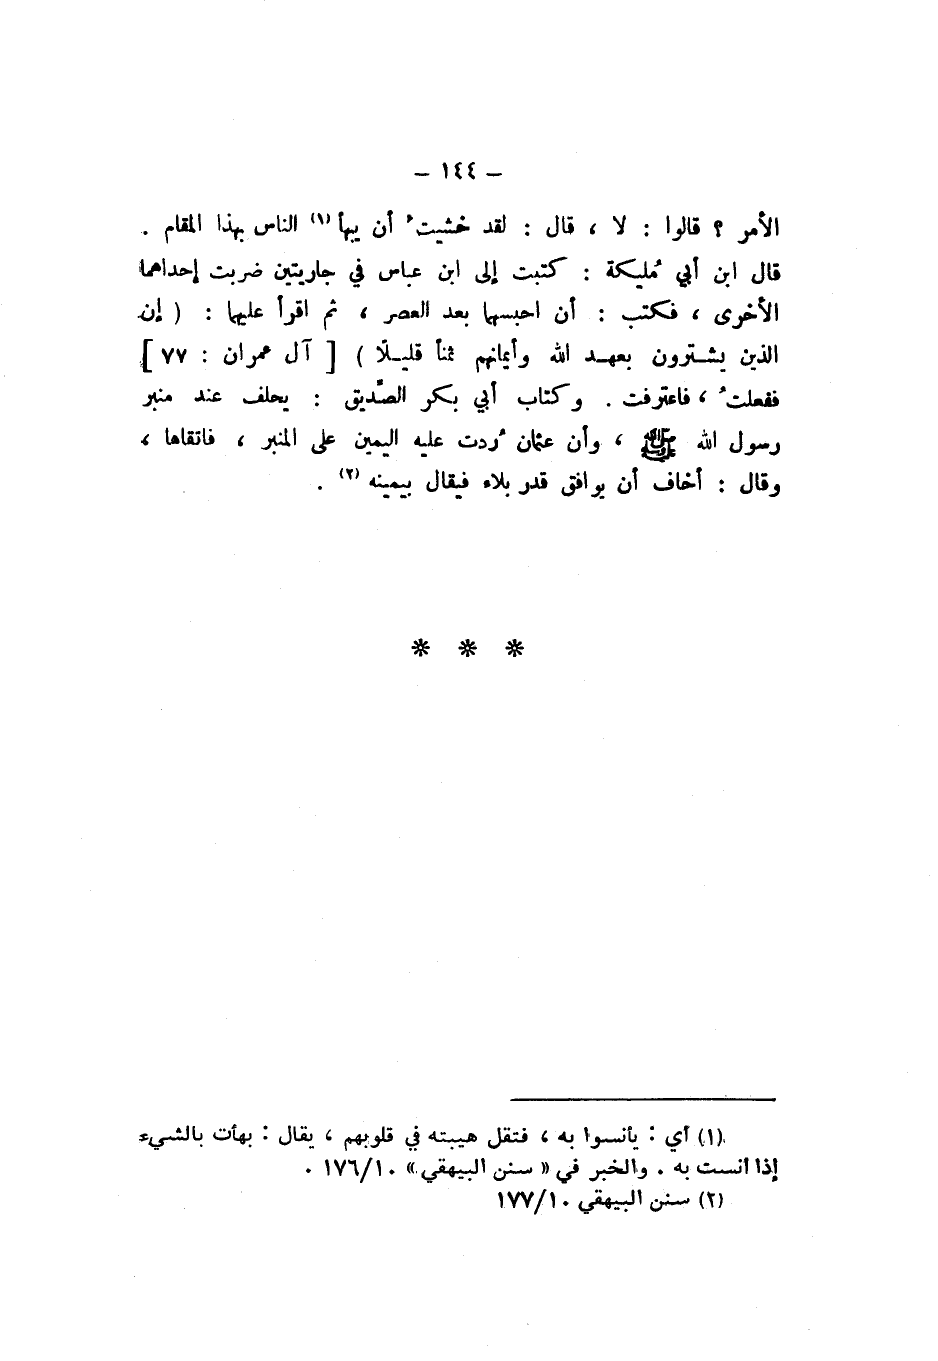 – ١٤٤ –
الأمر ؟ قالوا : لا ، قال : لقد خشيتُ أن يبهأ (١) الناس بهذا المقام .
قال ابن أبي مُليكة : كتبت إلى ابن عباس في جاريتين ضربت إحداهما
الأخرى ، فكتب : أن احبسها بعد العصر ، ثم اقرأ عليها : ( إن
الذين يشترون بعهد الله وأيمانهم ثمناً قليلًا ) [ آل عمران : ٧٧ ]
ففعلتُ ، فاعترفت . وكتاب أبي بكر الصّديق : يحلف عند منبر
رسول الله ﷺ ، وأن عثمان رُدت عليه اليمين على المنبر ، فاتقاها ،
وقال : أخاف أن يوافق قدر بلاء فيقال بيمينه (٢) .
* * *
(١) أي : يأنسوا به ، فتقل هيبته في قلوبهم ، يقال : بهأت بالشيء
إذا أنست به . والخبر في « سنن البيهقي » ١٧٦/١٠ .
(٢) سنن البيهقي ١٧٧/١٠